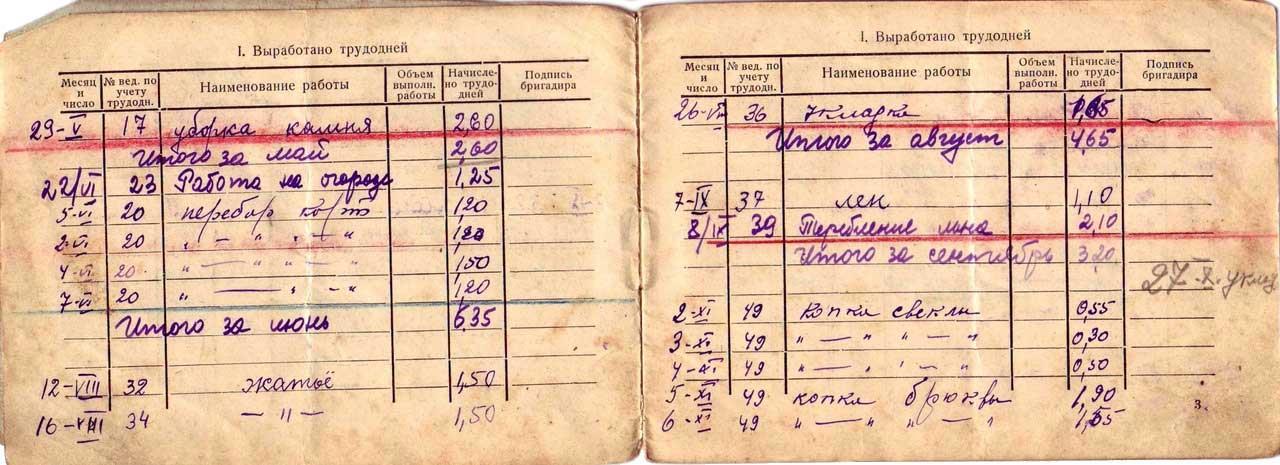 I. Выработано трудодней
Месяц и число № вед. по учету трудодн. Наименование работы Объем выполн. работы Начислено трудодней Подпись бригадира
29-V 17 уборка камня 2,60
Итого за май 2,60
22/VI 23 Работа на огороде 1,25
5-VI 20 перебор карт 1,20
2-VI 20 „ — „ „ — „ 1,20
4-VI 20 „ — „ „ — „ 1,50
7-VI 20 „ — „ — „ 1,20
Итого за июнь 6,35
12-VIII 32 жатьё 1,50
16-VIII 34 — „ — 1,50
I. Выработано трудодней
Месяц и число № вед. по учету трудодн. Наименование работы Объем выполн. работы Начислено трудодней Подпись бригадира
36 1,65
Итого за август 4,65
7-IX 37 лен 1,10
8/IX 39 Теребление льна 2,10
Итого за сентябрь 3,20
27-X
2-XI 49 Копка свеклы 0,55
3-XI 49 „ — „ — „ — „ 0,30
4-XI 49 „ — „ — „ — „ 0,50
5-XI 49 копка брюквы 1,90
6-XI 49 „ — „ „ — „ 1,55
3